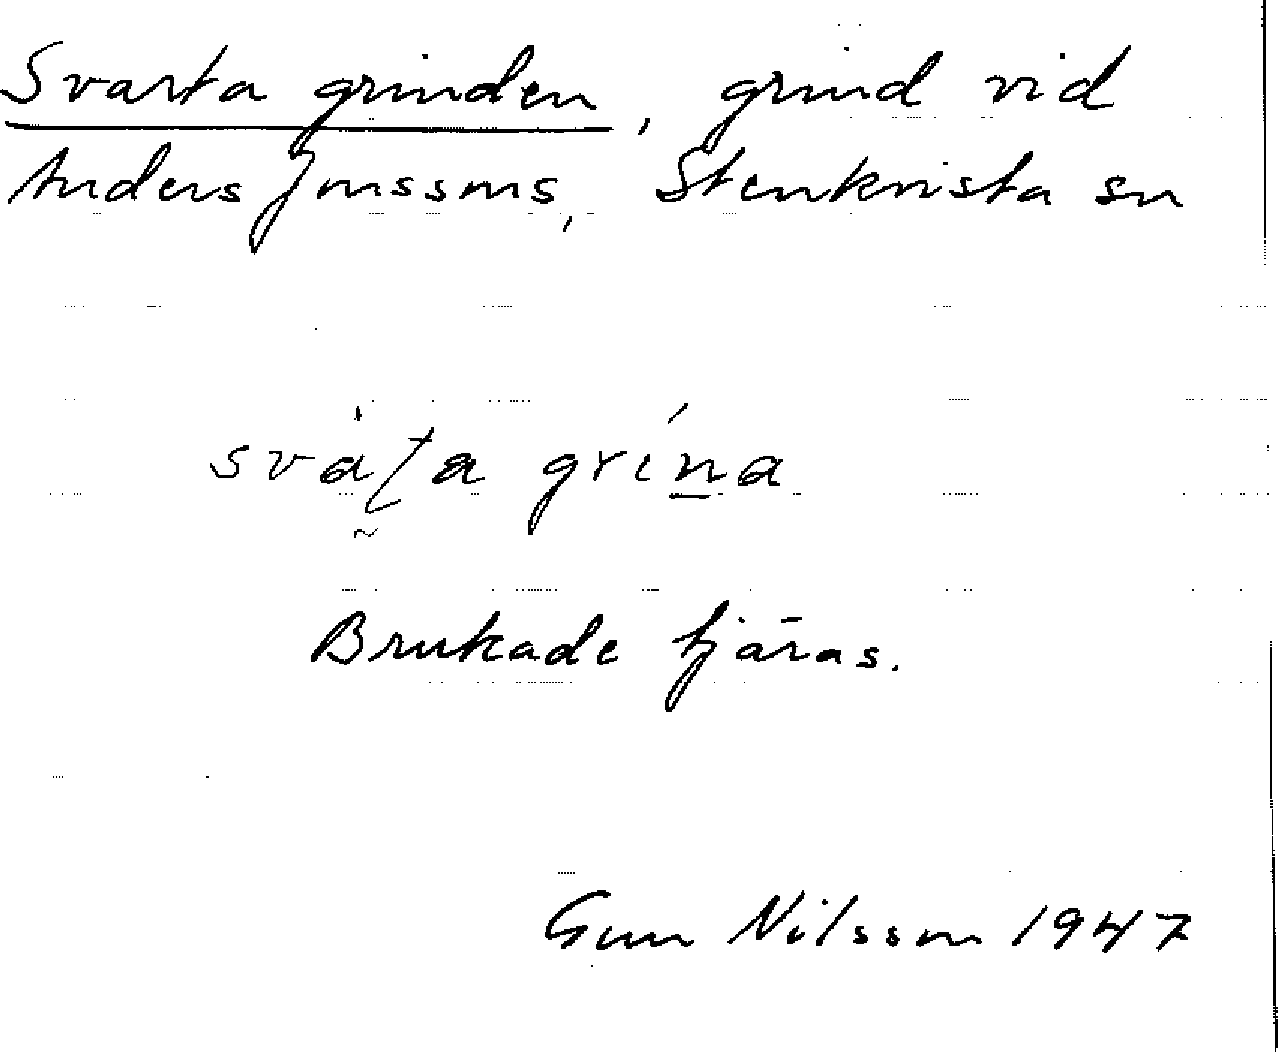 Svarta grinden, grind vid
Anders Jonssons, Stenkvista sn
svàʈa grína
Brukade tjäras.
Gun Nilsson 1947